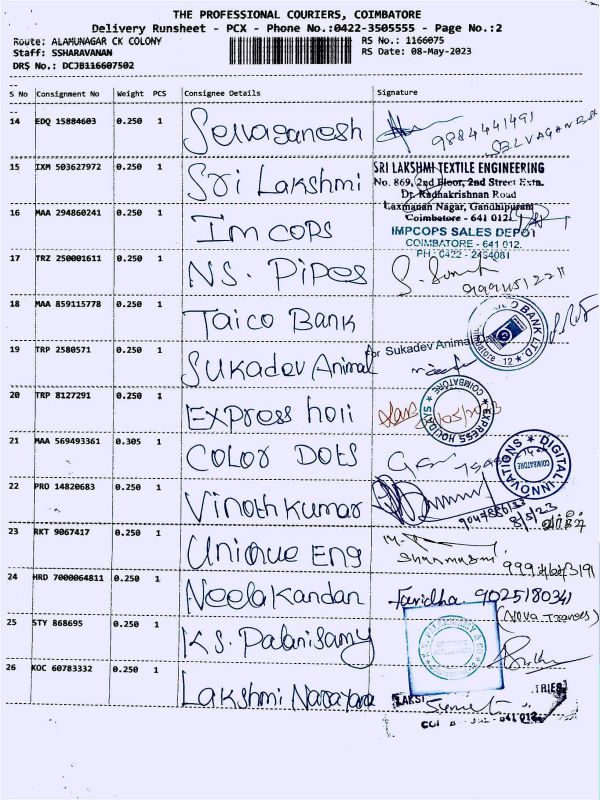 THE PROFESSIONAL COURIERS, COIMBATORE
Delivery Runsheet - PCX - Phone No.:0422-3505555 - Page No.:2
Route: ALAMUNAGAR CK COLONY
Staff: SSHARAVANAN
DRS No.: DCJB116607502
RS No.: 1166075
RS Date: 08-May-2023
S No Consignment No Weight PCS Consignee Details Signature
14 EDQ 15884603 0.250 1 Selvaganesh 9884441491
SELVAGANESH
15 IXM 503627972 0.250 1 Sri Lakshmi SRI LAKSHMI TEXTILE ENGINEERING
No. 869, 2nd Floor, 2nd Street Extn.
Dr. Radhakrishnan Road
Laxmanan Nagar, Gandhipuram
Coimbatore - 641 012.
16 MAA 294860241 0.250 1 Imcops IMPCOPS SALES DEPOT
COIMBATORE - 641 012.
17 TRZ 250001611 0.250 1 N.S. Pipes
18 MAA 859115778 0.250 1 Taico Bank BANK LTD
19 TRP 2580571 0.250 1 Sukadev Animal for Sukadev Animal
20 TRP 8127291 0.250 1 Express holi EXPRESS HOLIDAYS COIMBATORE
21 MAA 569493361 0.305 1 Color Dots DIGITAL INNOVATIONS COIMBATORE
22 PRO 14820683 0.250 1 Vinoth Kumar 8/5/23
23 RKT 9067417 0.250 1 Unique Eng
24 HRD 7000064811 0.250 1 Neelakandan Faridha 9025180341
(Nova Travels)
25 STY 868695 0.250 1 K.S. Palanisamy
26 KOC 60783332 0.250 1 Lakshmi Narayana